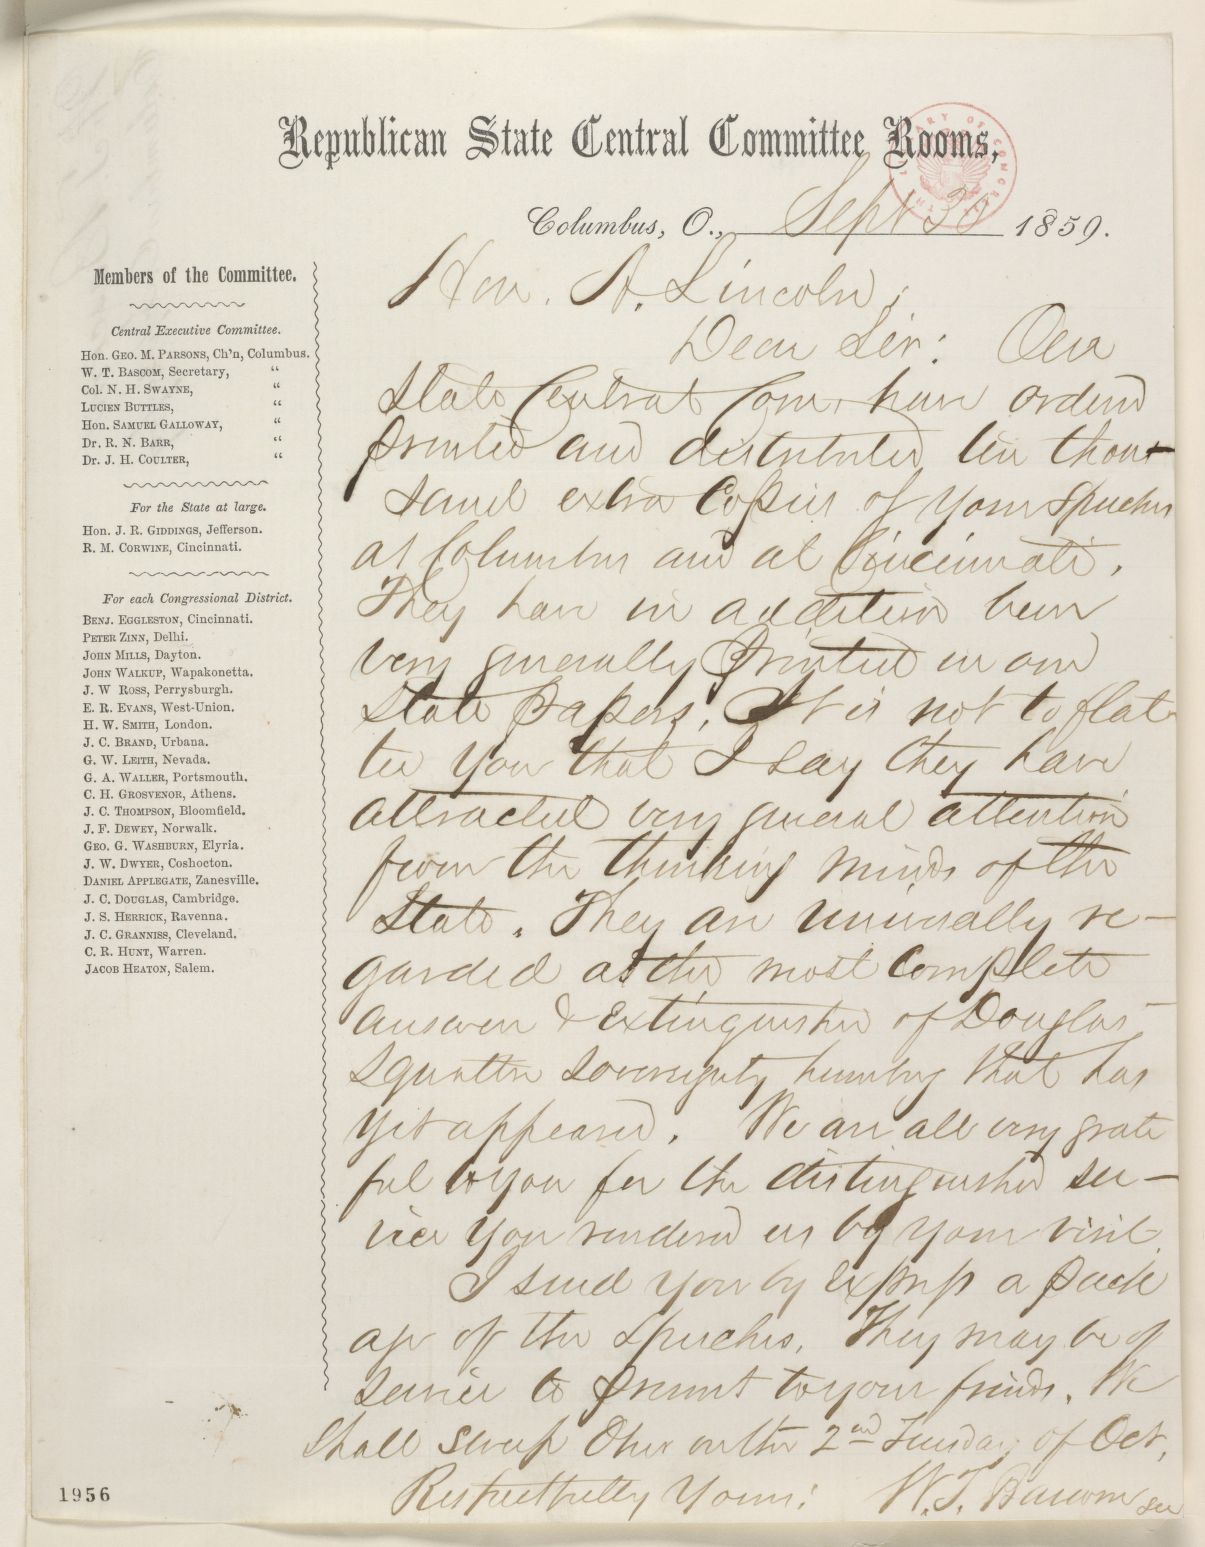 Republican State Central Committee Rooms,
Columbus, O., Sept 30 1859.
Members of the Committee.
Central Executive Committee.
Hon. Geo. M. Parsons, Ch'n, Columbus.
W. T. Bascom, Secretary, "
Col. N. H. Swayne, "
Lucien Buttles, "
Hon. Samuel Galloway, "
Dr. R. N. Barr, "
Dr. J. H. Coulter, "
For the State at large.
Hon. J. R. Giddings, Jefferson.
R. M. Corwine, Cincinnati.
For each Congressional District.
Benj. Eggleston, Cincinnati.
Peter Zinn, Delhi.
John Mills, Dayton.
John Walkup, Wapakonetta.
J. W Ross, Perrysburgh.
E. R. Evans, West-Union.
H. W. Smith, London.
J. C. Brand, Urbana.
G. W. Leith, Nevada.
G. A. Waller, Portsmouth.
C. H. Grosvenor, Athens.
J. C. Thompson, Bloomfield.
J. F. Dewey, Norwalk.
Geo. G. Washburn, Elyria.
J. W. Dwyer, Coshocton.
Daniel Applegate, Zanesville.
J. C. Douglas, Cambridge.
J. S. Herrick, Ravenna.
J. C. Granniss, Cleveland.
C. R. Hunt, Warren.
Jacob Heaton, Salem.
Hon. A. Lincoln;
Dear Sir: Our
State Central Com. have ordered
printed and distributed ten thou-
sand extra Copies of your Speeches
at Columbus and at Cincinnati.
They have in addition been
very generally printed in our
State papers. It is not to flat
ter you that I say they have
attracted very general attention
from the thinking minds of the
State. They are universally re-
garded as the most complete
answer & extinguisher of Douglas
squatter sovereignty humbug that has
yet appeared. We are all very grate
ful to you for the distinguished ser-
vice you rendered us by your visit.
I send you by express a pack
age of the speeches. They may be of
service to present to your friends. We
shall sweep Ohio on the 2nd Tuesday of Oct.
Respectfully Yours: W. T. Bascom sec
1956